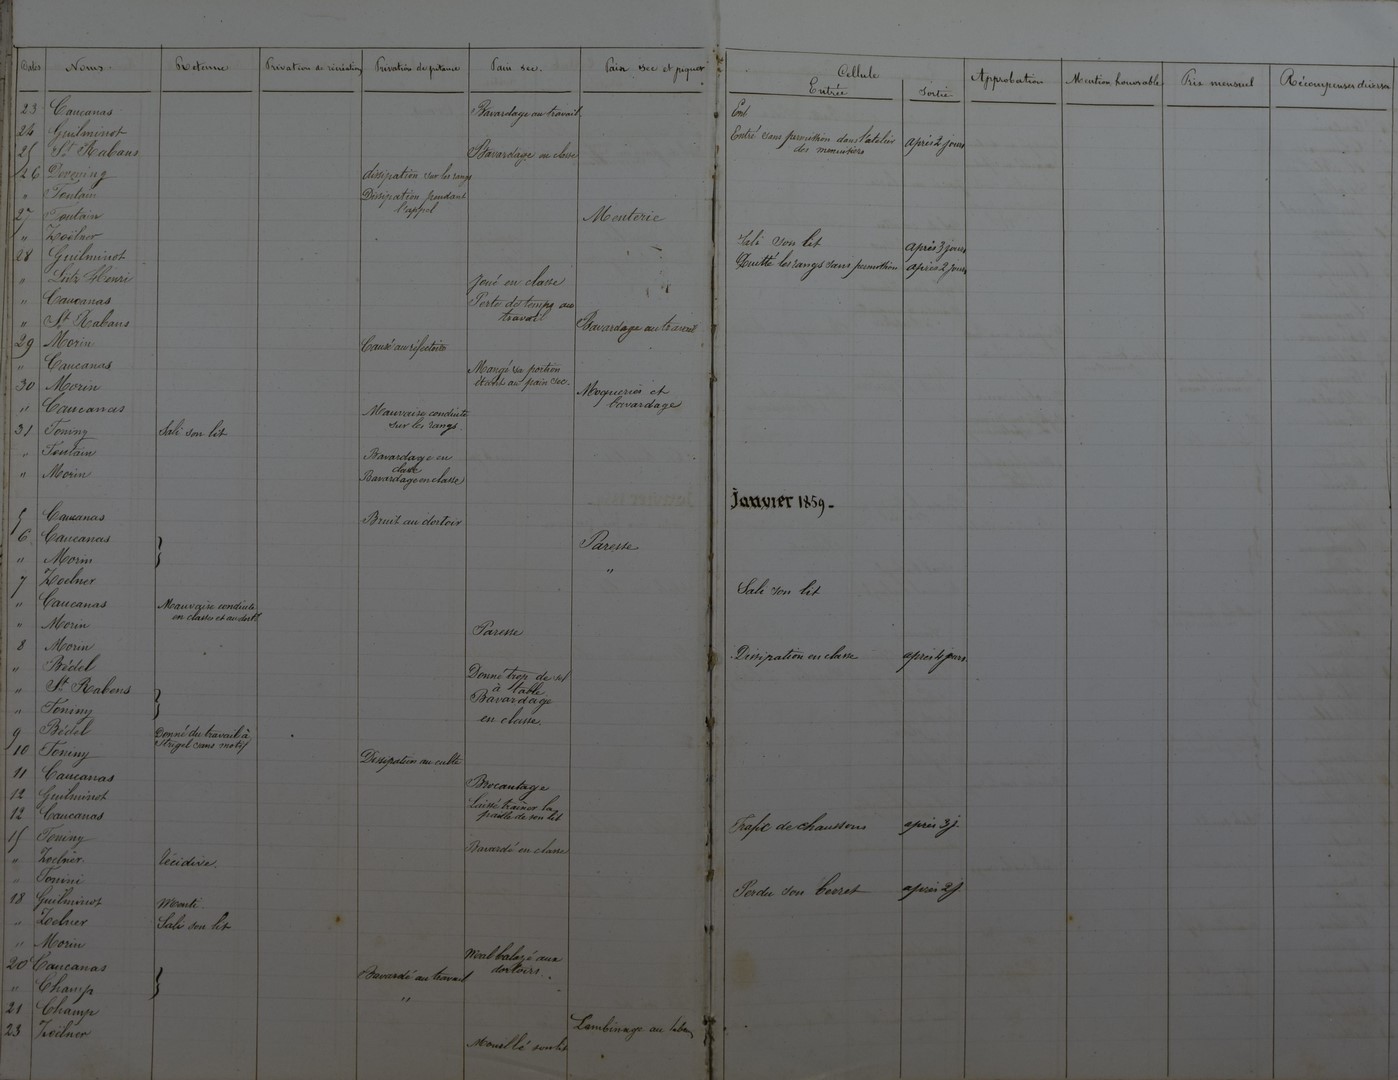 Dates Noms Retenue Privation de récréation Privation de pitance Pain sec. Pain sec et piquet Cellule Entrée Sortie Approbation Mention honorable Prix mensuel Récompenses diverses
23 Caucanas Bavardage au travail Ent
24 Guilminot Entré sans permission dans l'atelier des menuisiers après 2 jours
25 St Rabans Bavardage en classe
26 dissipation sur les rangs
" Fontain Dissipation pendant l'appel
27 Fontain Menterie
" Zoëlner Sali son lit après 3 jours
28 Guilminot Quitté les rangs sans permission après 2 jours
" Henri Joué en classe
" Caucanas Perte de temps au travail
" St Rabans Bavardage au travail
29 Morin Causé au réfectoire
" Caucanas Mangé sa portion étant au pain sec.
30 Morin Moqueries et bavardage
" Caucanas Mauvaise conduite sur les rangs.
31 Toniny Sali son lit
" Fontain Bavardage en classe
" Morin Bavardage en classe
Janvier 1859-
5 Caucanas Bruit au dortoir
6 Caucanas } Paresse
" Morin } "
7 Zoelner Sali son lit
" Caucanas Mauvaise conduite en classe et au dort.
" Morin Paresse
8 Morin Dissipation en classe après 4 jours
" Bédel Donné trop de sel à table
" St Rabans } Bavardage
" Toniny } en classe.
9 Bédel Donné du travail à Strigel sans motif
10 Toniny Dissipation au culte
11 Caucanas Brocantage
12 Guilminot Laissé traîner la paille de son lit
12 Caucanas Trafic de chaussons après 3 j.
15 Toniny Bavardé en classe
" Zoelner récidive.
" Tonini Perdu son berret après 2 j.
18 Guilminot Menti
" Zoelner Sali son lit
" Morin Mal balayé aux dortoirs.
20 Caucanas } Bavardé au travail
" Champ } "
21 Champ Lambinage au
23 Zoëlner Mouillé son lit